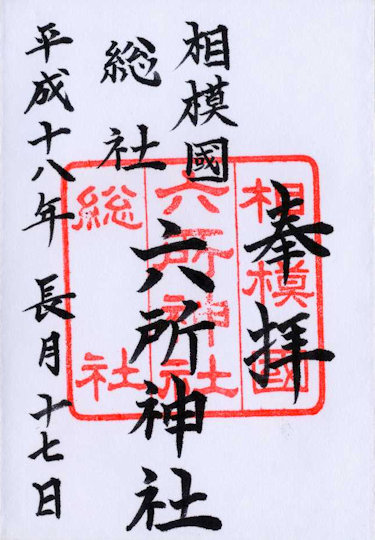 奉拝
相模國
総社
六所神社
平成十八年 長月十七日
相模國
六所神社
総社